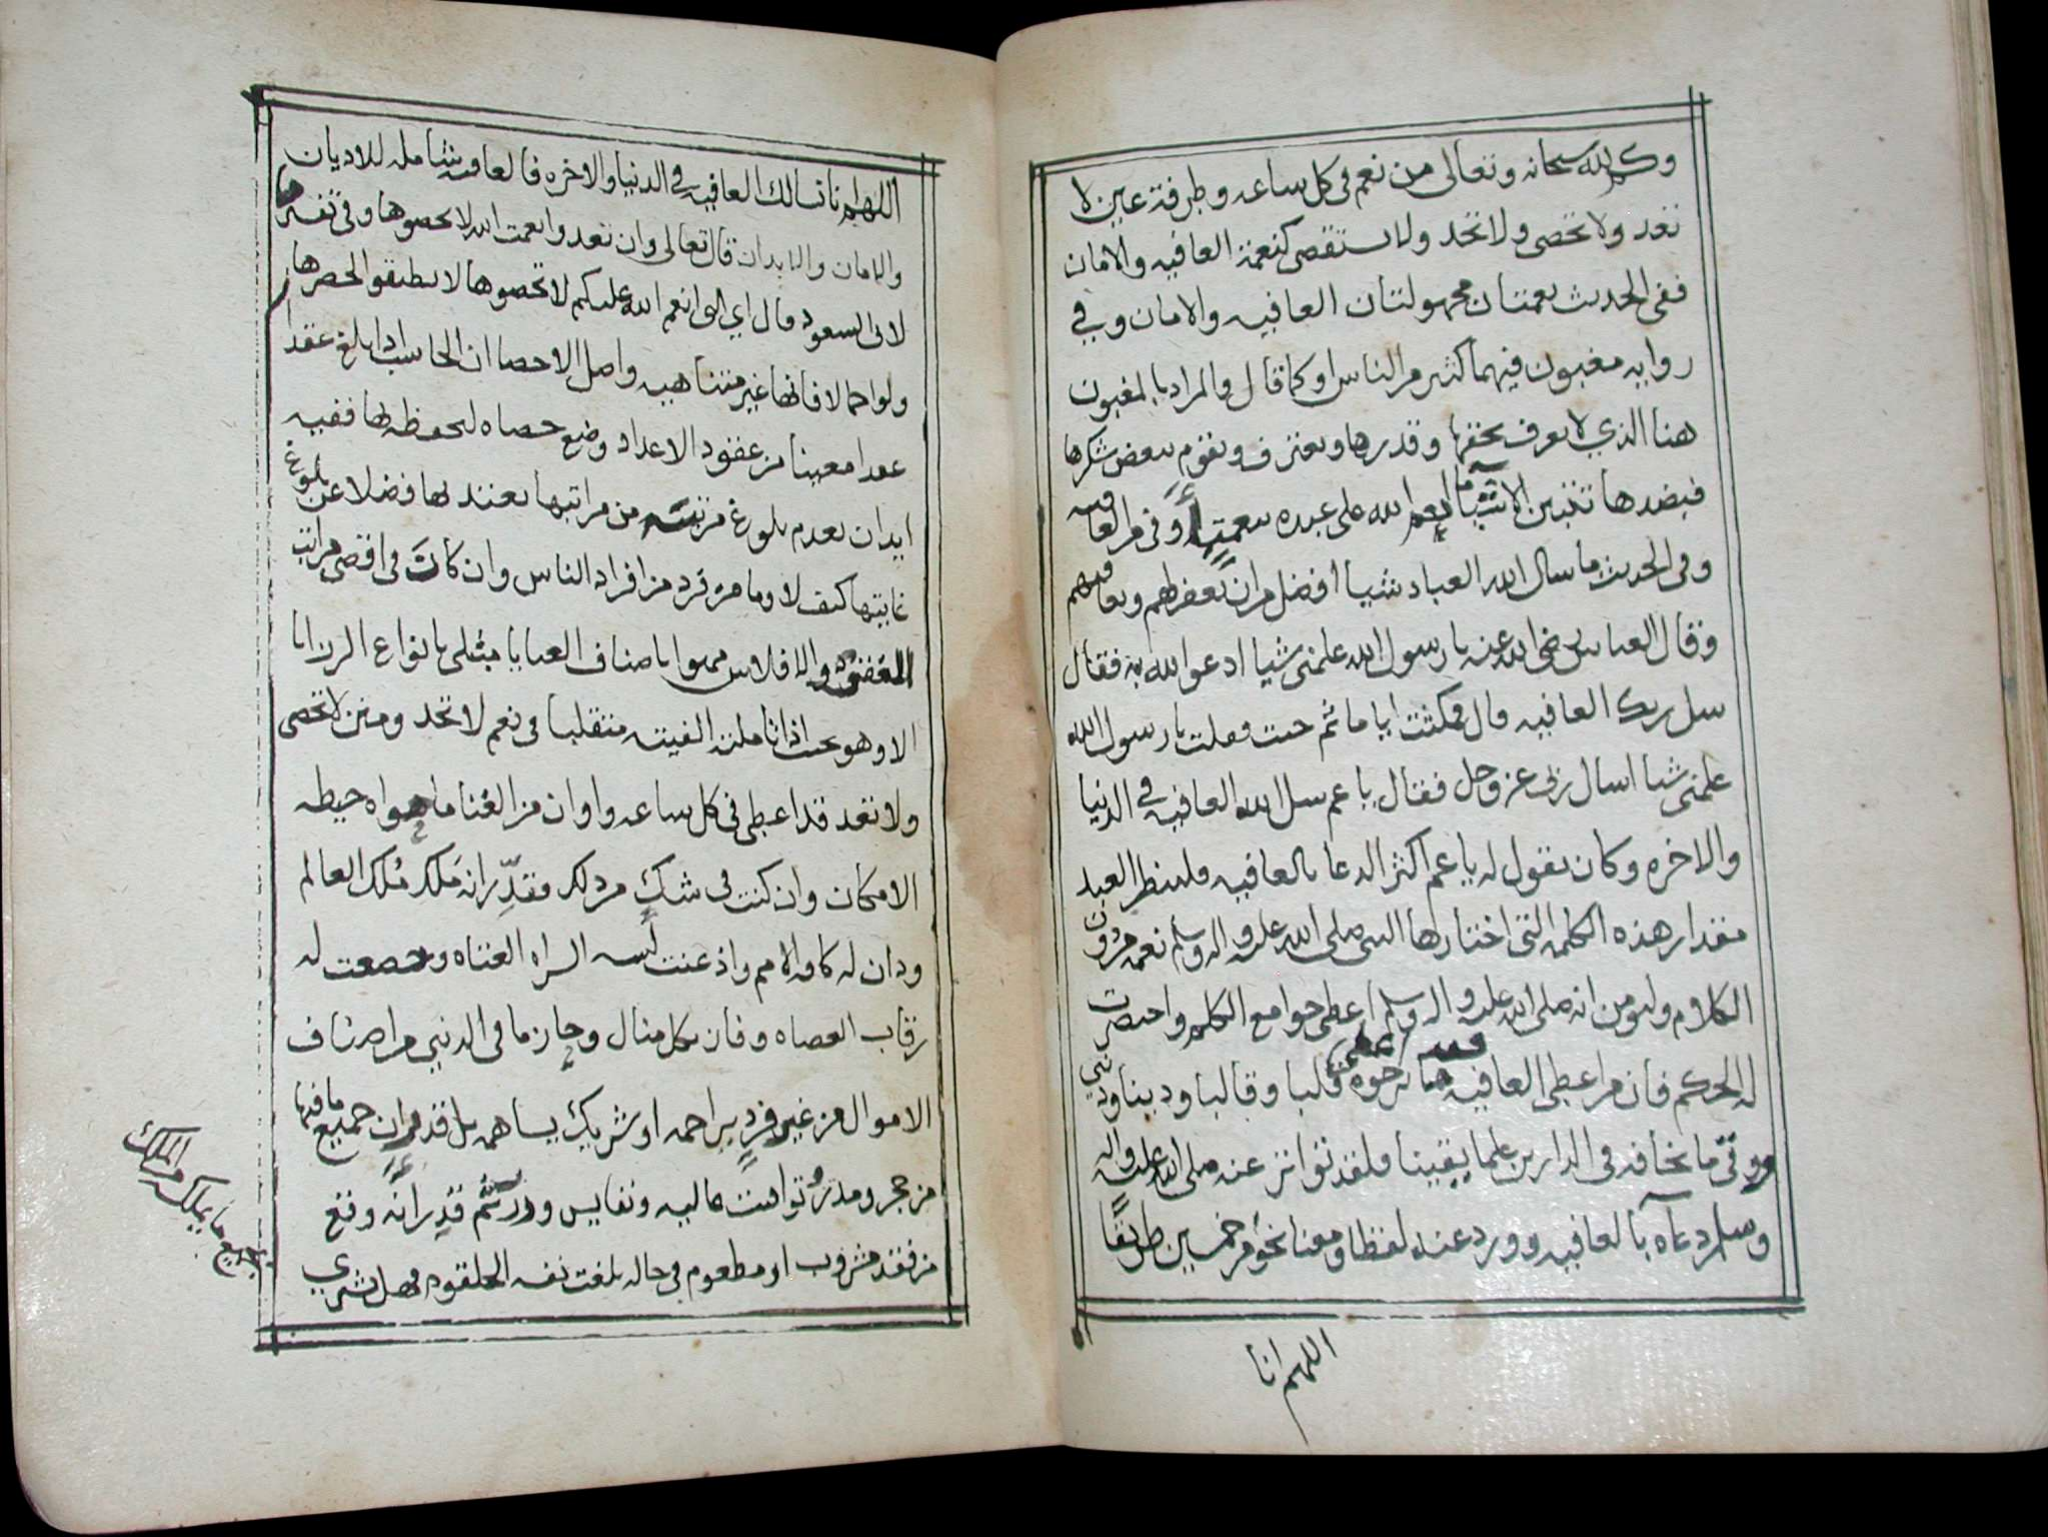 وكم لله سبحانه وتعالى من نعم في كل ساعه وطرفة عين لا
تعد ولا تحصى ولا تحد ولا تستقصى كنعمة العافيه والامان
ففي الحديث نعمتان مجهولتان العافيه والامان وفي
روايه مغبون فيهما كثير من الناس او كما قال والمراد بالمغبون
هنا الذي لا يعرف بحقها وقدرها ويعترف ويقوم ببعض شكرها
فبضدها تتبين الاشيا ما انعم الله على عبده بنعمة أوفى من العافيه
وفي الحديث ما سال الله العباد شيا أفضل من ان يغفر لهم ويعافيهم
وقال العباس رضي الله عنه يا رسول الله علمني شيا ادعوا الله به فقال
سل ربك العافيه قال فمكثت اياما ثم جيت فقلت يا رسول الله
علمني شيا اسال ربي عز وجل فقال يا عم سل الله العافيه في الدنيا
والاخره وكان يقول له يا عم اكثر الدعا بالعافيه فلينظر العبد
مقدار هذه الكلمه التي اختارها النبي صلى الله عليه واله وسلم لعمه من دون
الكلام وليومن انه صلى الله عليه واله وسلم اعطي جوامع الكلم واختصرت
له الحكم فان من اعطي العافيه فقد اعطي قلبا وقالبا ودينا ودني
ووقي ما يخافه في الدارين علما يقينا فلقد تواتر عنه صلى الله عليه واله
وسلم دعاه بالعافيه وورد عنه لفظا ومعنا نحو من خمسين طريقًا
اللهم انا
اللهم انا نسالك العافيه في الدنيا والاخره فالعافيه شامله للاديان
والامان والابدان قال تعالى وان تعدوا نعمت الله لا تحصوها وفي تفسير
لابي السعود قال اي التي انعم الله عليكم لا تحصوها لا تطيقوا لحصرها
ولو اجمالا فانها غير متناهيه واصل الاحصا ان الحاسب اذا بلغ عقدا
عقدا معينا من عقود الاعداد وضع حصاه لحفظه لها ففيه
ايدان بعدم بلوغ مرتبة من مراتبها يعتد لها فضلا عن بلوغ
غايتها كيف لا وما من فرد من افراد الناس وان كان في اقصى مراتب
الفقر والافلاس ممنوا باصناف العبايا مبتلى بانواع الرزايا
الا وهو بحيث اذا تاملته الفيته متقلبا في نعم لا تحد ومنن لا تحصى
ولا تعد قد اعطي في كل ساعه واوان من الغنا ما حواه حيطه
الامكان وان كنت في شك من ذلك فقدّر انه مَلَك مُلك العالم
ودان له كافه الامم واذعنت السراه العتاه وخضعت له
رقاب العصاه وفاز بكل منال وحاز ما في الدني من اصناف
الاموال من غير فرد يزاحمه او شريك يساهمه بل قدر ان جميع ما فيها
من حجر ومدر يواقيت غاليه ونفايس ودرر ثم قدر انه وقع
من فقد مشروب او مطعوم في حاله بلغت نفسه الحلقوم فهل يشري
بجميع ما يملك من الملك